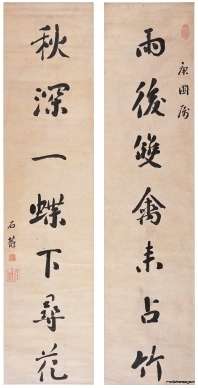 雨後雙禽來占竹
秋深一蝶下尋花
庚園屬
石菴